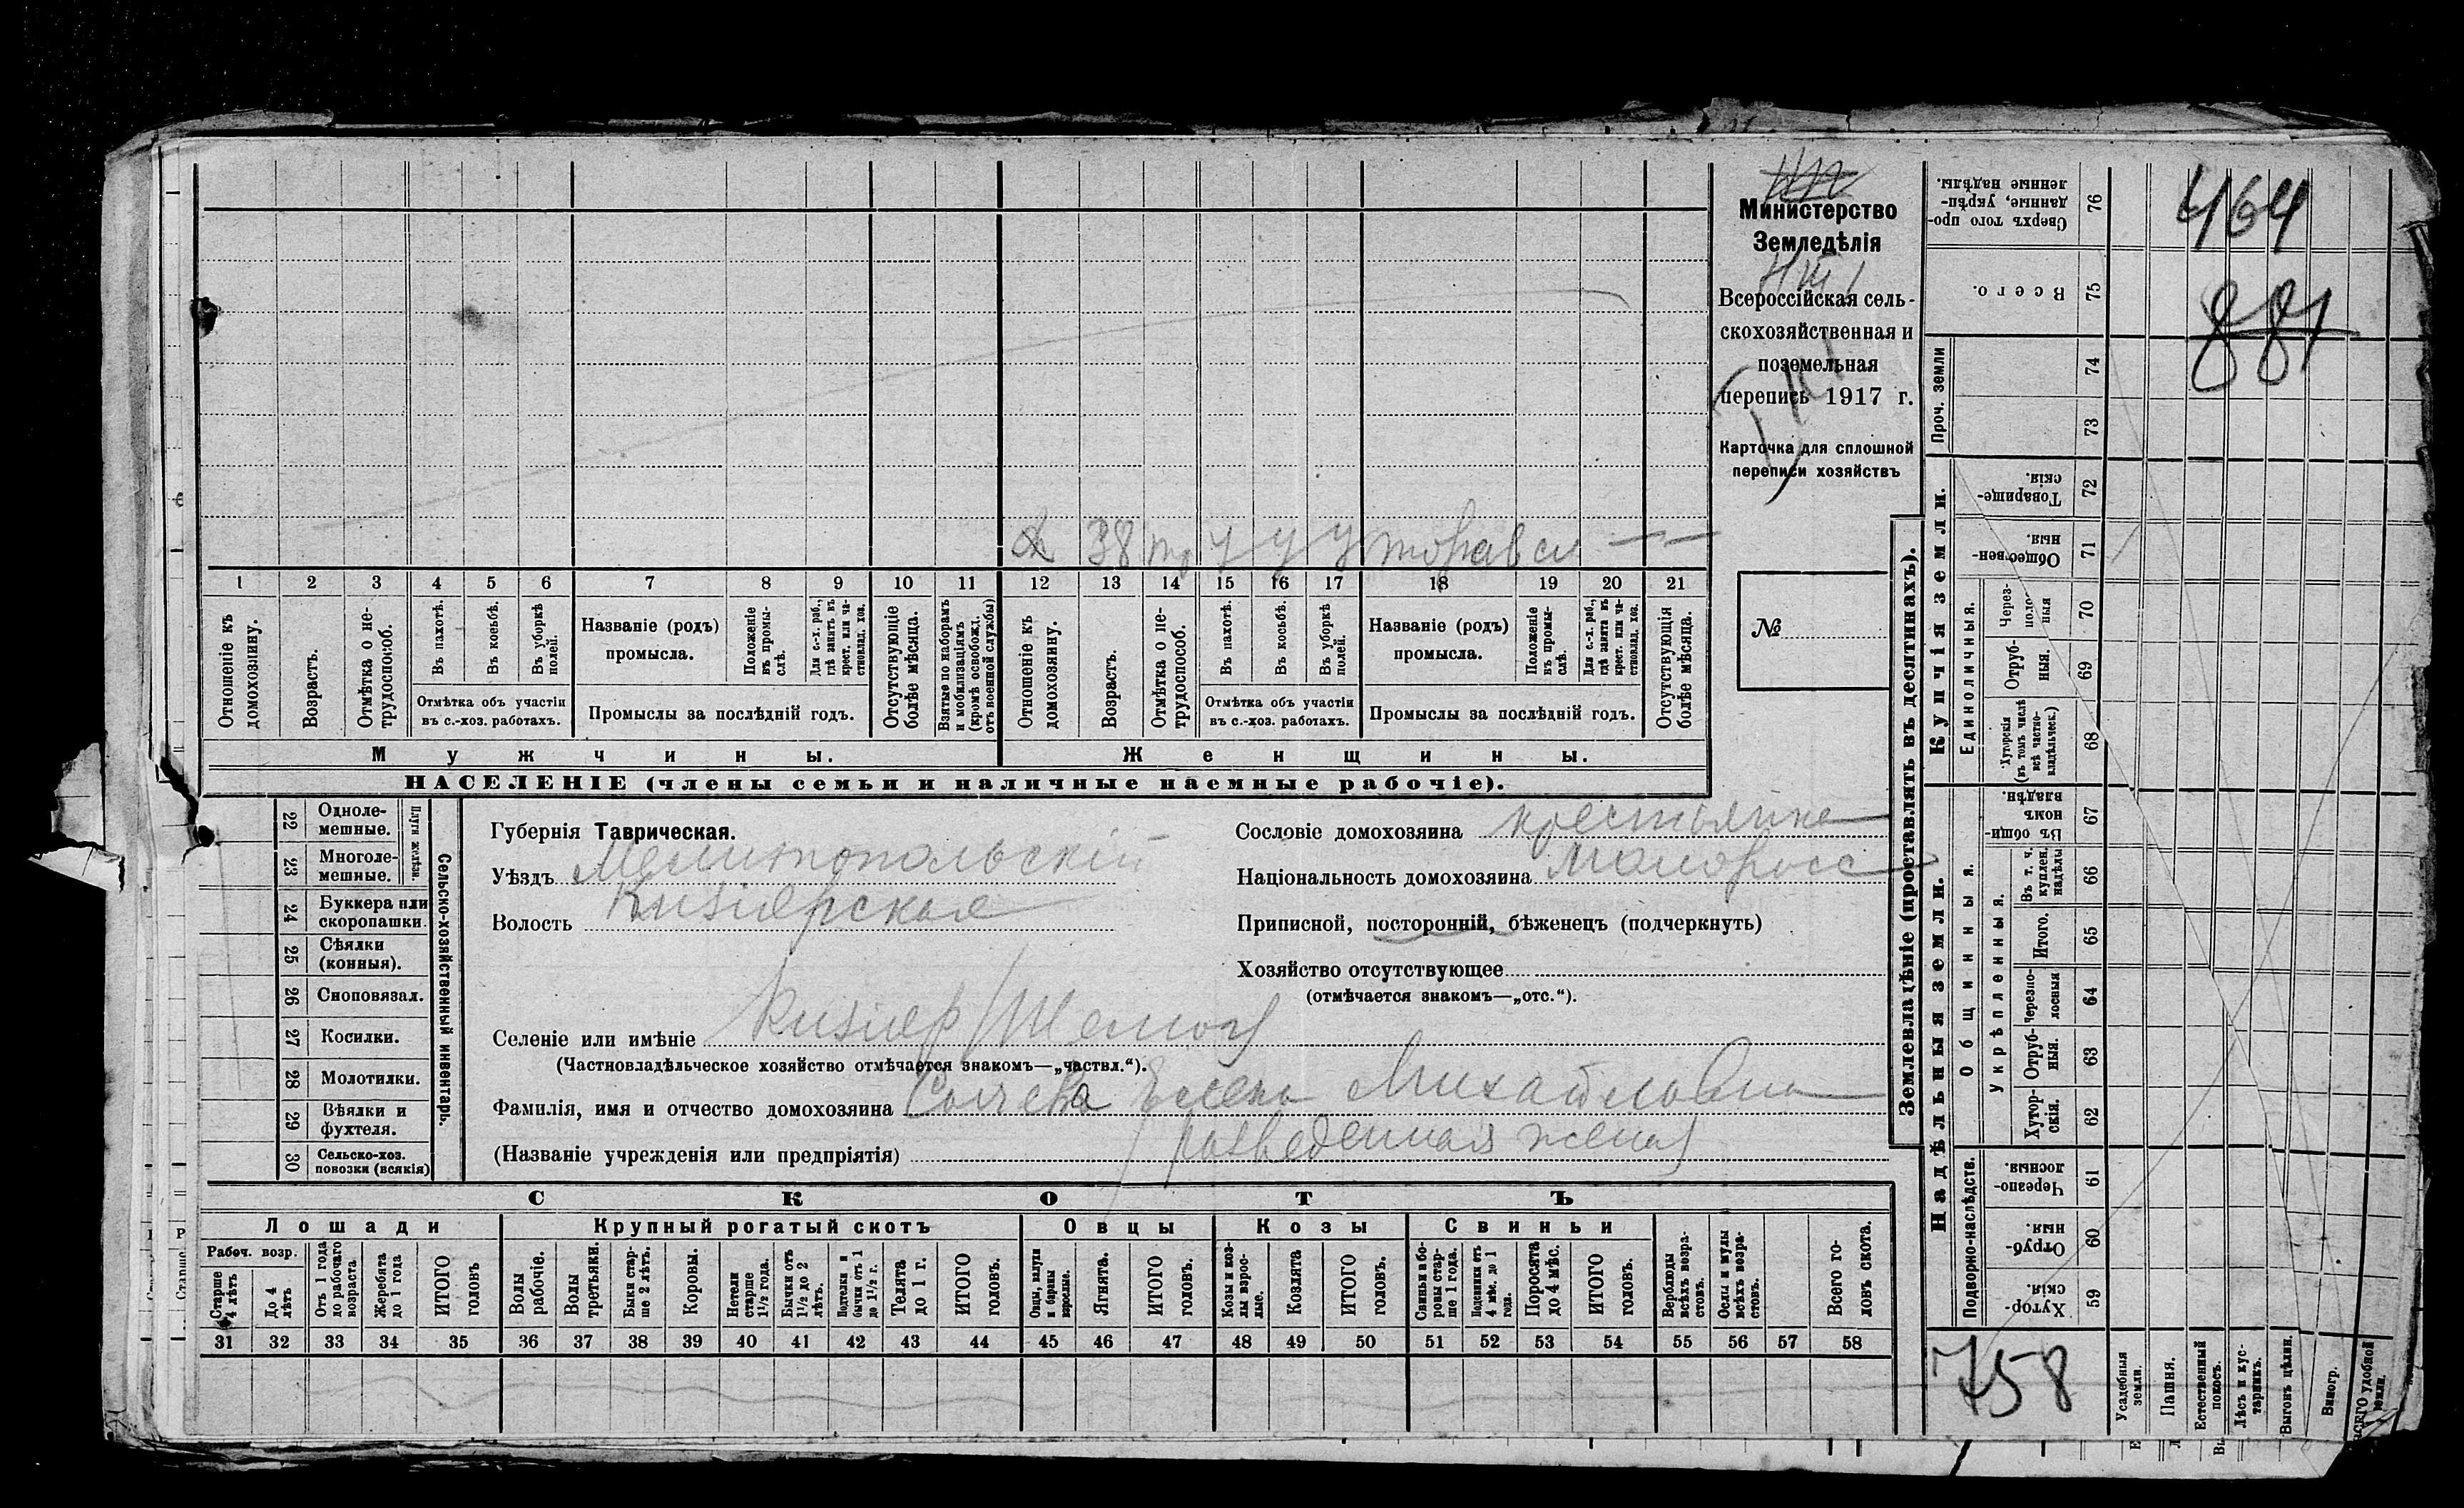 Министерство
Земледѣлія
Всероссійская сель-
скохозяйственная и
поземельная
перепись 1917 г.
Карточка для сплошной
переписи хозяйствъ
№
464
881
38
1 2 3 4 5 6 7 8 9 10 11 12 13 14 15 16 17 18 19 20 21
Отношеніе къ домохозяину.
Возрастъ.
Отмѣтка о не-
трудоспособ.
Въ пахотѣ.
Въ косьбѣ.
Въ уборкѣ полей.
Отмѣтка объ участіи
въ с.-хоз. работахъ.
Названіе (родъ)
промысла.
Положеніе въ промы-
слѣ.
Для с.-х. раб., гдѣ занятъ въ крест. или ча-
стновлад. хоз.
Промыслы за послѣдній годъ.
Отсутствующіе болѣе мѣсяца.
Взятые по наборамъ и мобилизаціямъ (кромѣ освобожд. отъ военной службы)
Отношеніе къ домохозяину.
Возрастъ.
Отмѣтка о не-
трудоспособ.
Въ пахотѣ.
Въ косьбѣ.
Въ уборкѣ полей.
Отмѣтка объ участіи
въ с.-хоз. работахъ.
Названіе (родъ)
промысла.
Положеніе въ промы-
слѣ.
Для с.-х. раб., гдѣ занята въ крест. или ча-
стновлад. хоз.
Промыслы за послѣдній годъ.
Отсутствующія болѣе мѣсяца.
Мужчины.
Женщины.
НАСЕЛЕНІЕ (члены семьи и наличные наемные рабочіе).
22 Одноле-
мешные.
23 Многоле-
мешные.
Плуги желѣзн.
24 Буккера или
скоропашки.
25 Сѣялки
(конныя).
26 Сноповязал.
27 Косилки.
28 Молотилки.
29 Вѣялки и
фухтеля.
30 Сельско-хоз.
повозки (всякія)
Сельско-хозяйственный инвентарь.
Губернія Таврическая.
Уѣздъ Мелитопольскій
Волость Кизіярская
Селеніе или имѣніе Кизіяр
(Частновладѣльческое хозяйство отмѣчается знакомъ—„частвл.“).
Фамилія, имя и отчество домохозяина Сычева Елена Михайловна
(Названіе учрежденія или предпріятія) разведенная жена
Сословіе домохозяина крестьянка
Національность домохозяина малоросс
Приписной, посторонній, бѣженецъ (подчеркнуть)
Хозяйство отсутствующее
(отмѣчается знакомъ—„отс.“).
СКОТЪ
Лошади
Крупный рогатый скотъ
Овцы
Козы
Свиньи
Рабоч. возр.
Старше 4 лѣтъ
До 4 лѣтъ
Отъ 1 года до рабочаго возраста
Жеребята до 1 года
ИТОГО головъ
Волы рабочіе.
Волы третьяки.
Быки стар-
ше 2 лѣтъ.
Коровы.
Нетели старше 1½ года.
Бычки отъ 1½ до 2 лѣтъ.
Водтелки и бычки отъ 1 до 1½ г.
Телята до 1 г.
ИТОГО головъ.
Овцы, валухи и бараны взрослые.
Ягнята.
ИТОГО головъ.
Козы и коз-
лы взрос-
лые.
Козлята
ИТОГО головъ.
Свиньи и бо-
ровы стар-
ше 1 года.
Подсвинки отъ 4 мѣс. до 1 года.
Поросята до 4 мѣс.
ИТОГО головъ.
Верблюды всѣхъ возра-
стовъ.
Ослы и мулы всѣхъ возра-
стовъ.
Всего го-
ловъ скота.
31 32 33 34 35 36 37 38 39 40 41 42 43 44 45 46 47 48 49 50 51 52 53 54 55 56 57 58
Землевладѣніе (проставлять въ десятинахъ).
Купчія земли.
Надѣльныя земли.
Проч. земли
Единоличныя.
Общинныя.
Укрѣпленныя.
Подворно-наслѣдств.
Сверхъ того про-
данные, укрѣп-
ленные надѣлы.
76
Всего.
75
74
73
Товарище-
скія
72
Обществен-
ныя.
71
Через-
поло-
ныя
70
Отруб-
ныя.
69
Хуторскія (въ томъ числѣ всѣ частно-
владѣльческ.)
68
Въ общин-
номъ
владѣн.
67
Въ т. ч. куплен. надѣлы
66
Итого.
65
Черезпо-
лосныя
64
Отруб-
ныя.
63
Хутор-
скія.
62
Черезпо-
лосныя.
61
Отруб-
ныя.
60
Хутор-
скія.
59
758
Усадебныя земли.
Пашня.
Естественный покосъ.
Лѣсъ и кус-
тарникъ.
Выгонъ цѣлин.
Виногр.
ВСЕГО удобной земли.